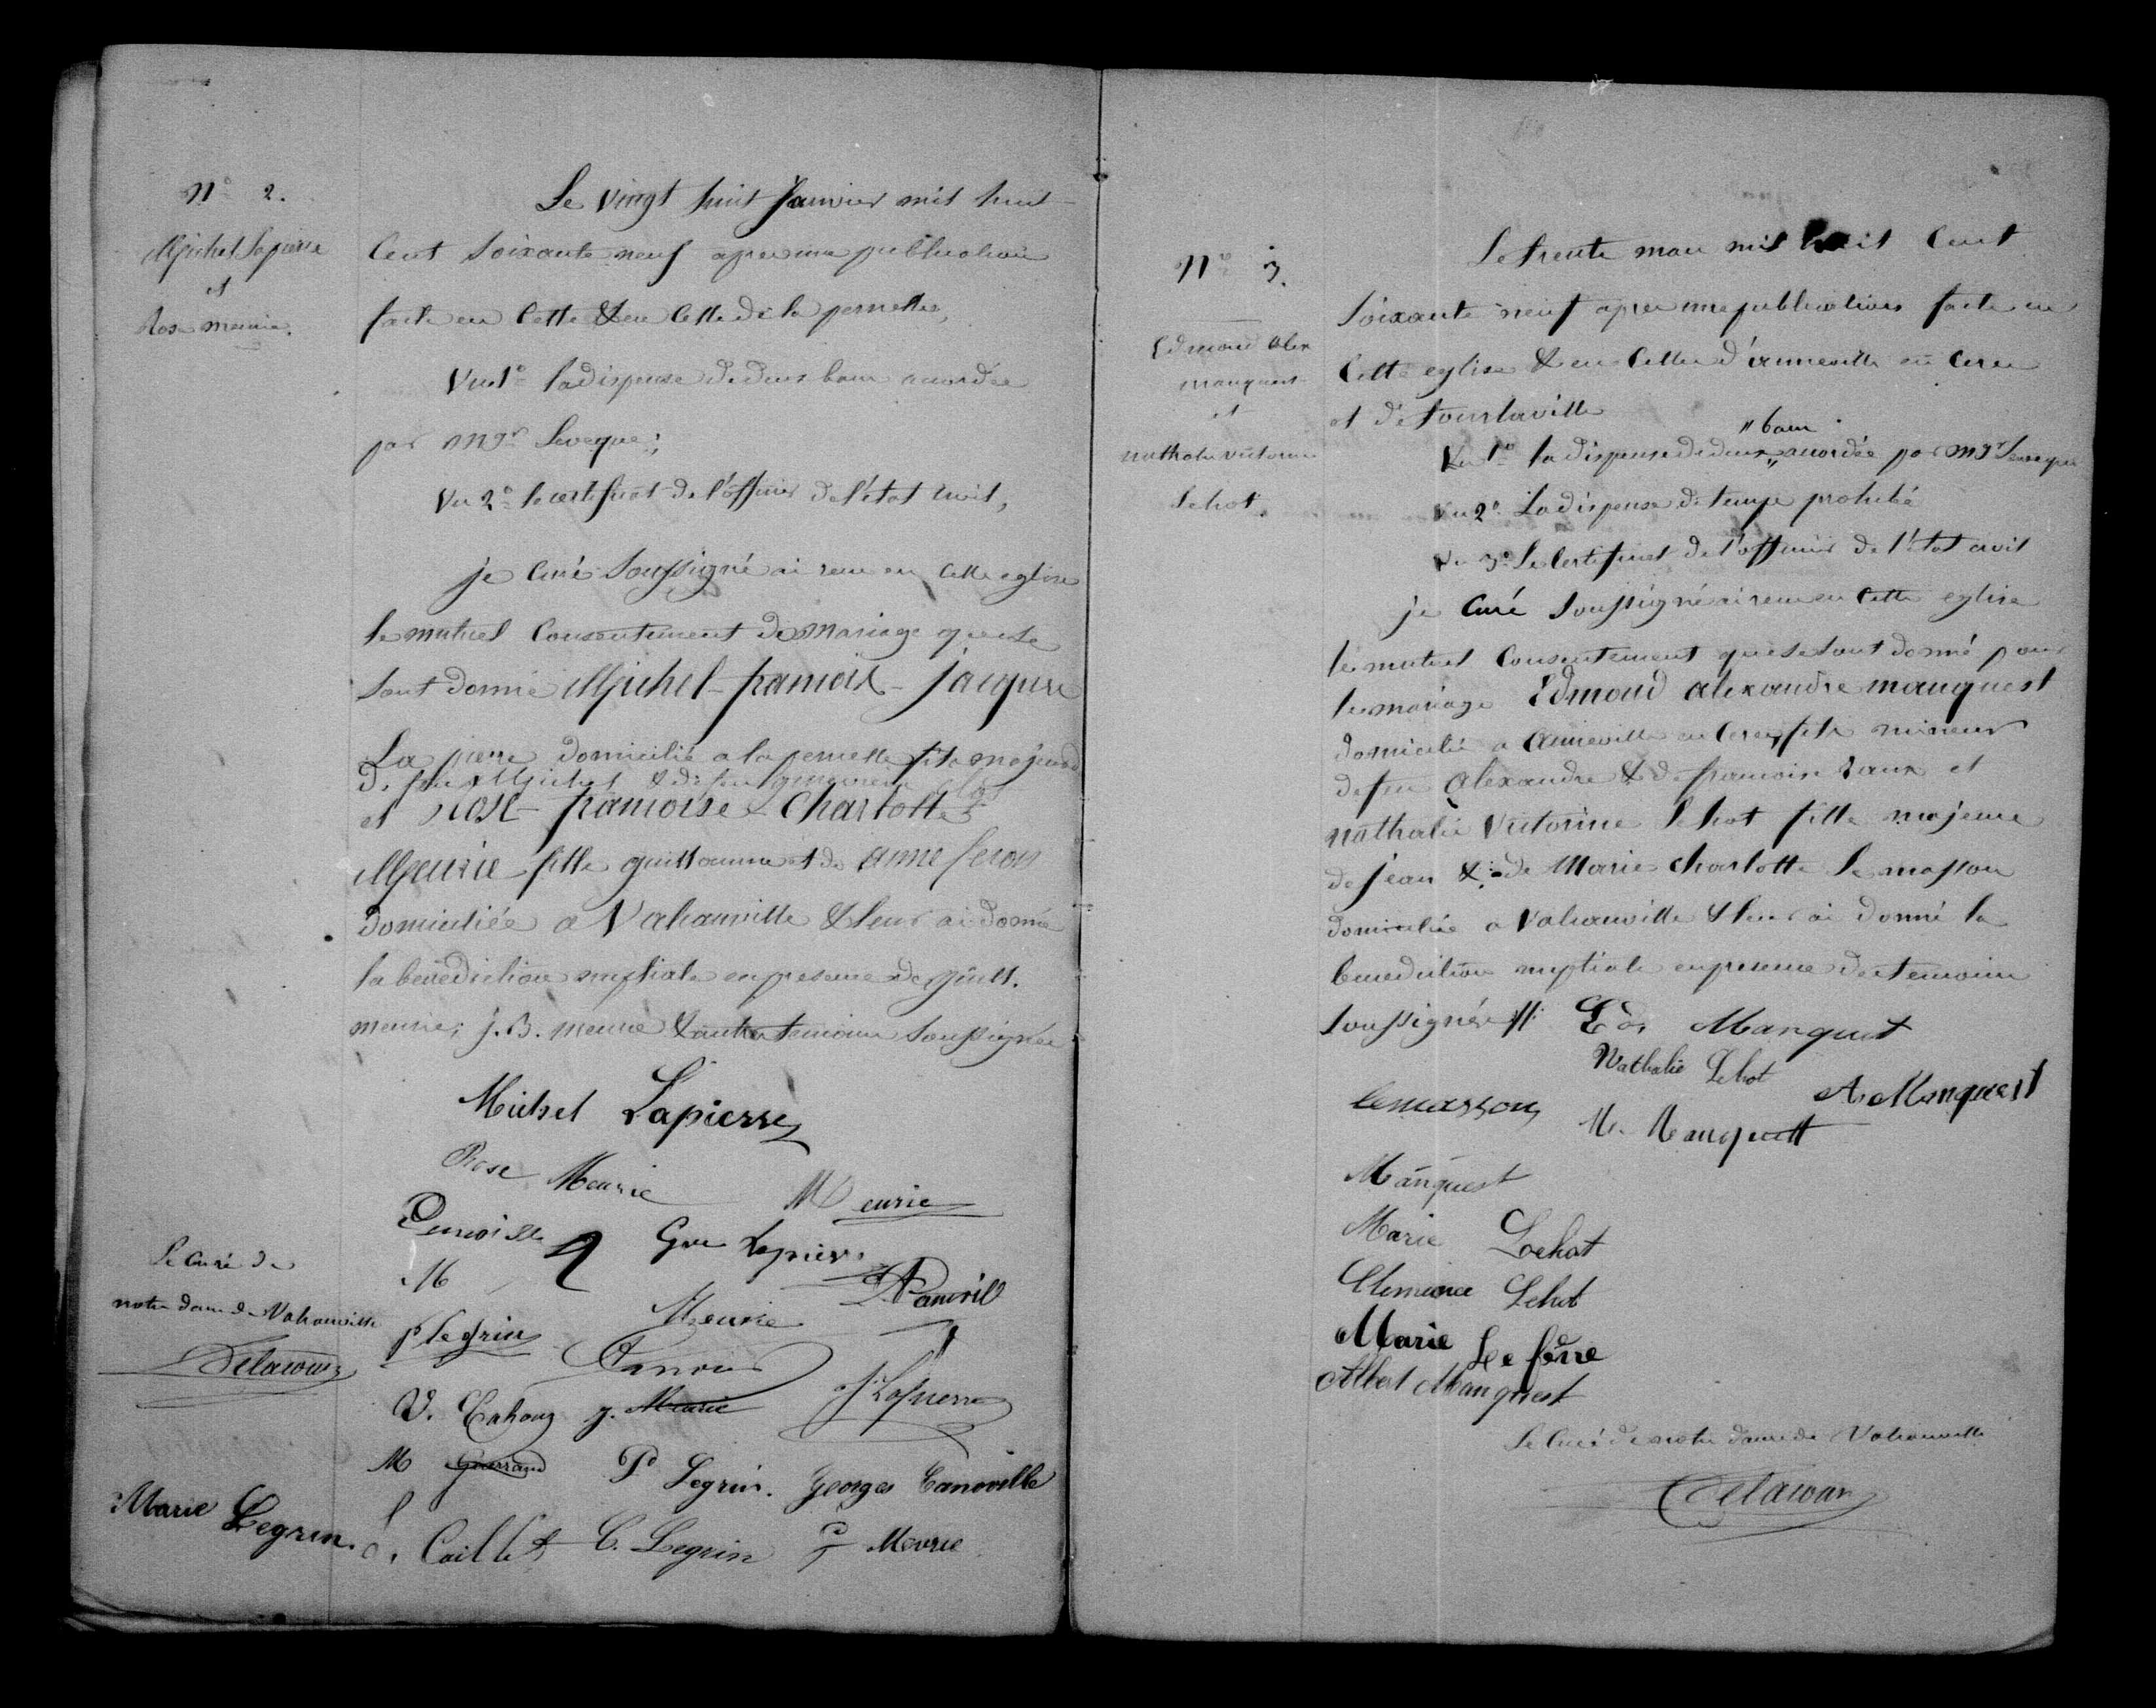 N° 2.
Michel Lapierre
et
Rose meurie.
Le vingt huit Janvier mil huit
Cent Soixante neuf apres une publication
faite en Cette & en Celle de la pernelle,
Vu 1° la dispense de deux bans accordée
par Mgr Leveque;
Vu 2° le certificat de l'officier de l'état civil,
je Curé Soussigné ai recu en Cette eglise
le mutuel Consentement de Mariage que se
sont donné Michel-francois-jacques
La pierre domicilié a la pernelle fils majeur
de feu Michel & de feu
et rose-francoise-Charlotte
Meurie fille guillaume et de anne feron
domiciliée a Valcanville & leur ai donné
la bénédiction nuptiale en presence de guill.
meurie, J.B. meurie & autres temoins soussignés
Michel Lapierre
Rose Meurie
Meurie
Gme Lapierre
M
Meurie
P Legrin
V. Cahouz
g. Meurie
J. Lapierre
M Guerrand
Pd Legrin.
Georges Canoville
Caillet
C. Legrin
Meurie
Le Curé de
notre dame de Valcanville
Delacour
Marie Legrin.
N° 3.
Edmond Alex
manquest
et
nathalie victorine
Lehot.
Le trente mars mil huit Cent
Soixante neuf apres une publication faite en
Cette eglise & en Celles d'anneville en Cerès
et de tourlaville
Vu 1° la dispense de deux "bans" accordée par Mgr Leveque
Vu 2° La dispense de temps prohibé
Vu 3° Le Certificat de l'officier de l'état civil
je Curé Soussigné ai recu en Cette eglise
le mutuel Consentement que se sont donné pour
le mariage Edmond alexandre manquest
domicilié a anneville en Cerès, fils mineur
de feu Alexandre & de francoise et
nathalie Victorine Lehot fille majeure
de jean & de Marie Charlotte Le masson
domiciliée a Valcanville & leur ai donné la
benediction nuptiale en presence des temoins
soussignés
Ed. Manquest
Nathalie Lehot
A. Manquest
Lemasson
M. Manquest
Manquest
Marie Lehot
Clemence Lehot
Marie Le fevre
Albert Manquest
Le Curé de notre dame de Valcanville
Delacour